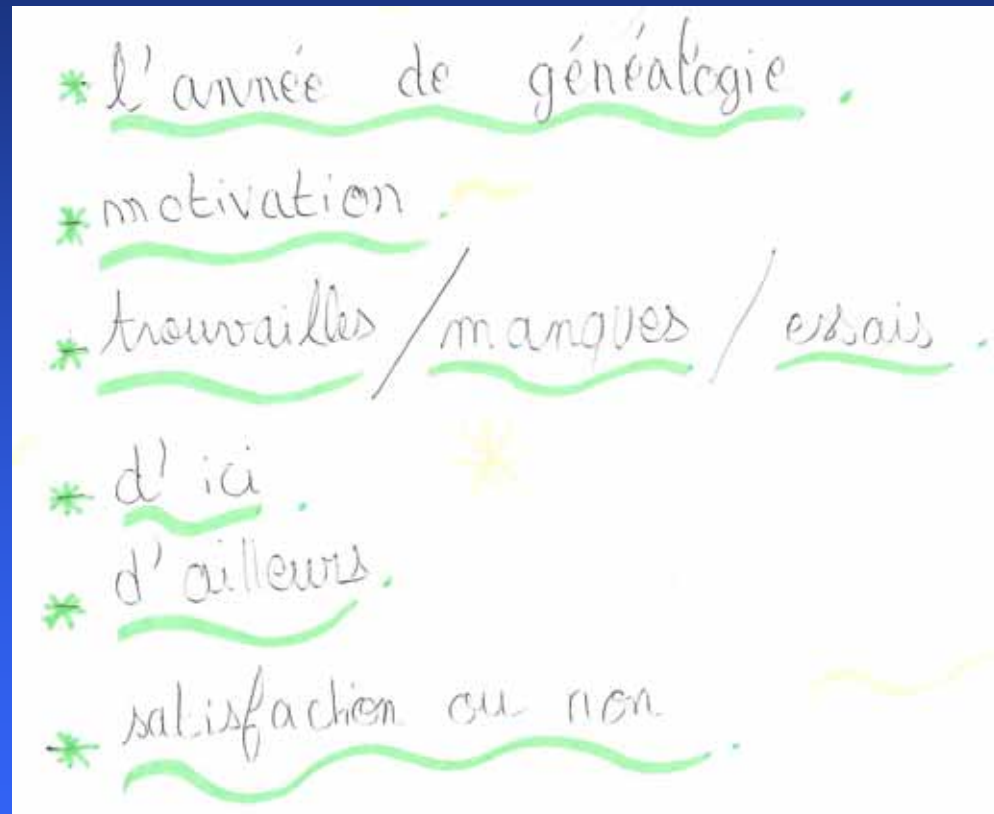 * l'année de généalogie.
* motivation.
* trouvailles / manques / essais.
* d'ici.
* d'ailleurs.
* satisfaction ou non.